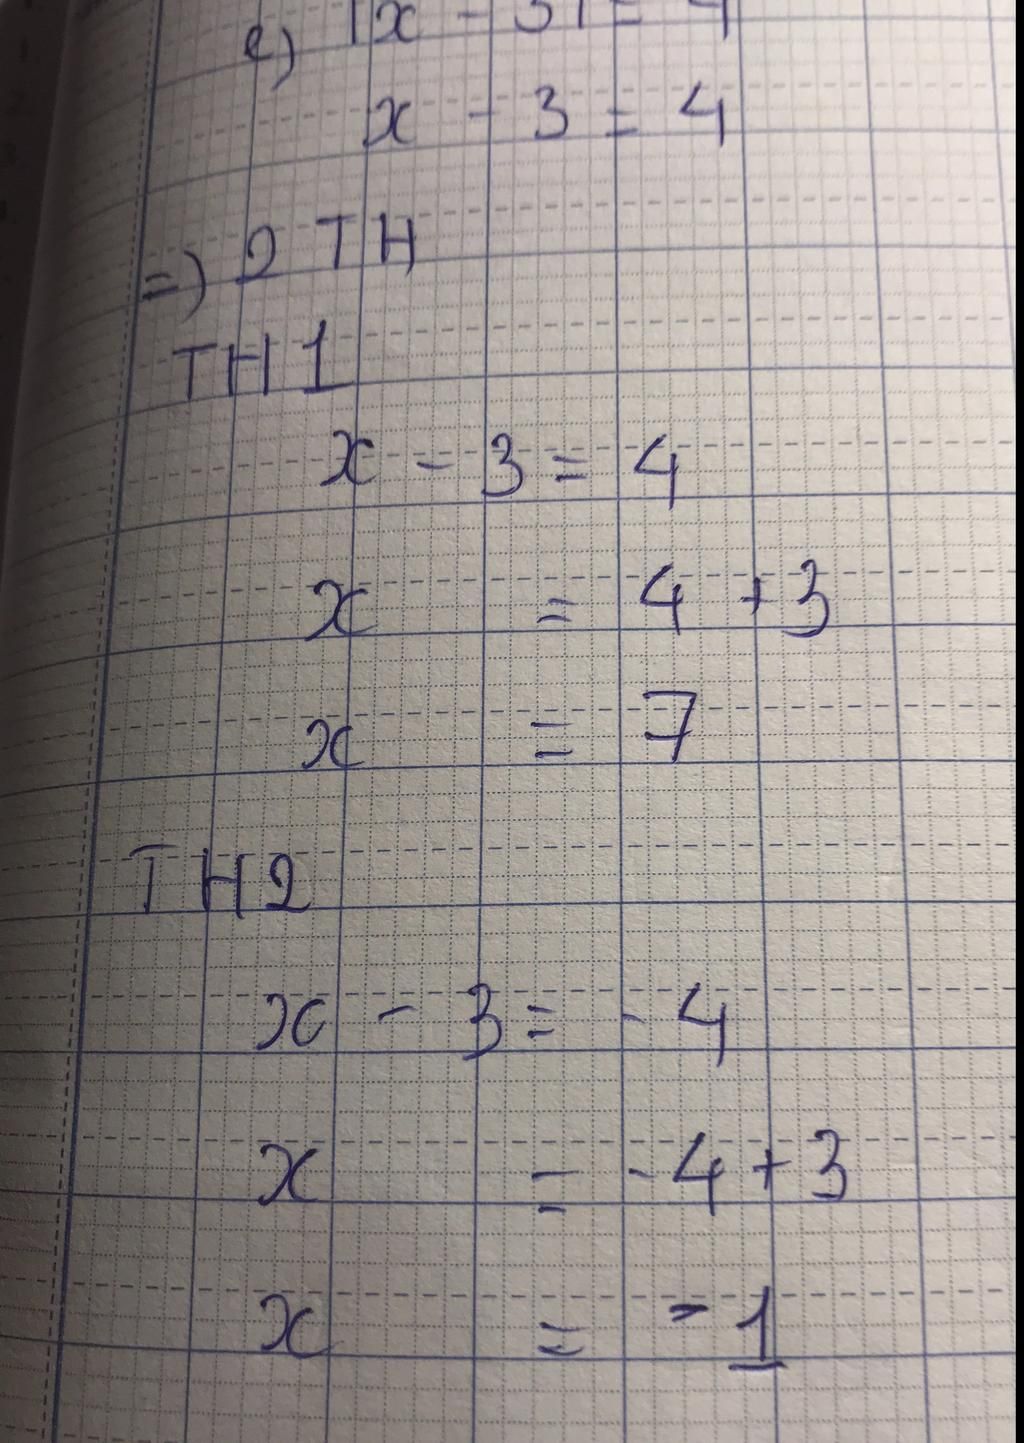 e) |x - 3| = 4
x - 3 = 4
=) 2 TH
TH1
x - 3 = 4
x = 4 + 3
x = 7
TH2
x - 3 = - 4
x = - 4 + 3
x = - 1